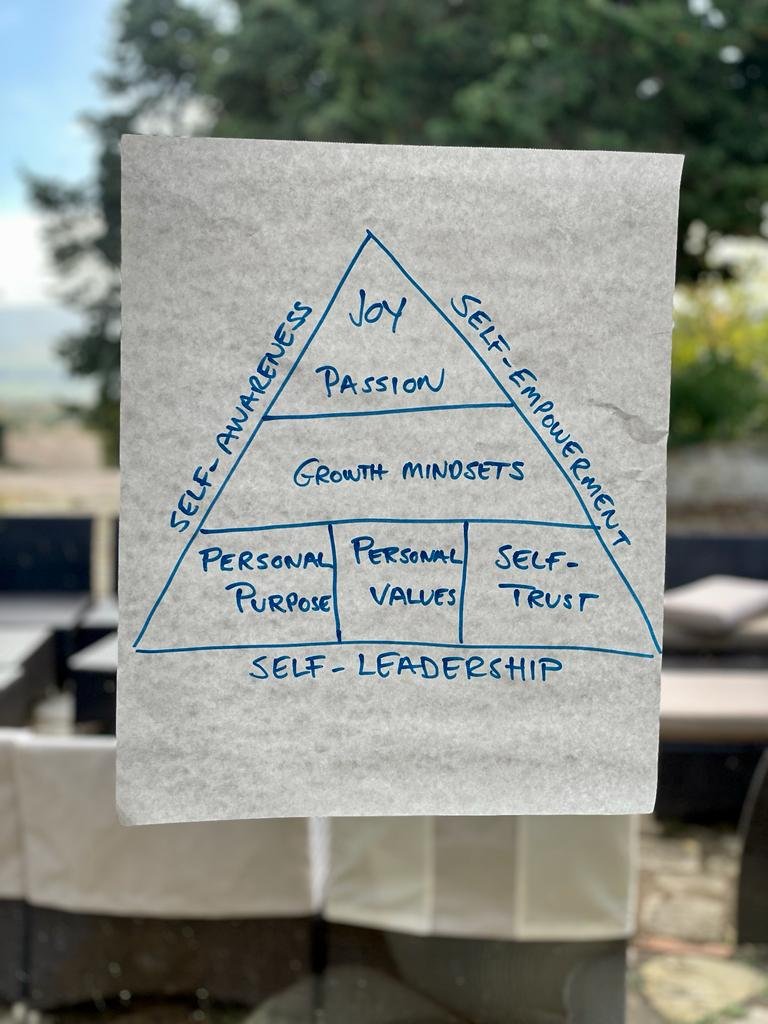 JOY
PASSION
SELF-AWARENESS
SELF-EMPOWERMENT
GROWTH MINDSETS
PERSONAL
PURPOSE
PERSONAL
VALUES
SELF-
TRUST
SELF-LEADERSHIP